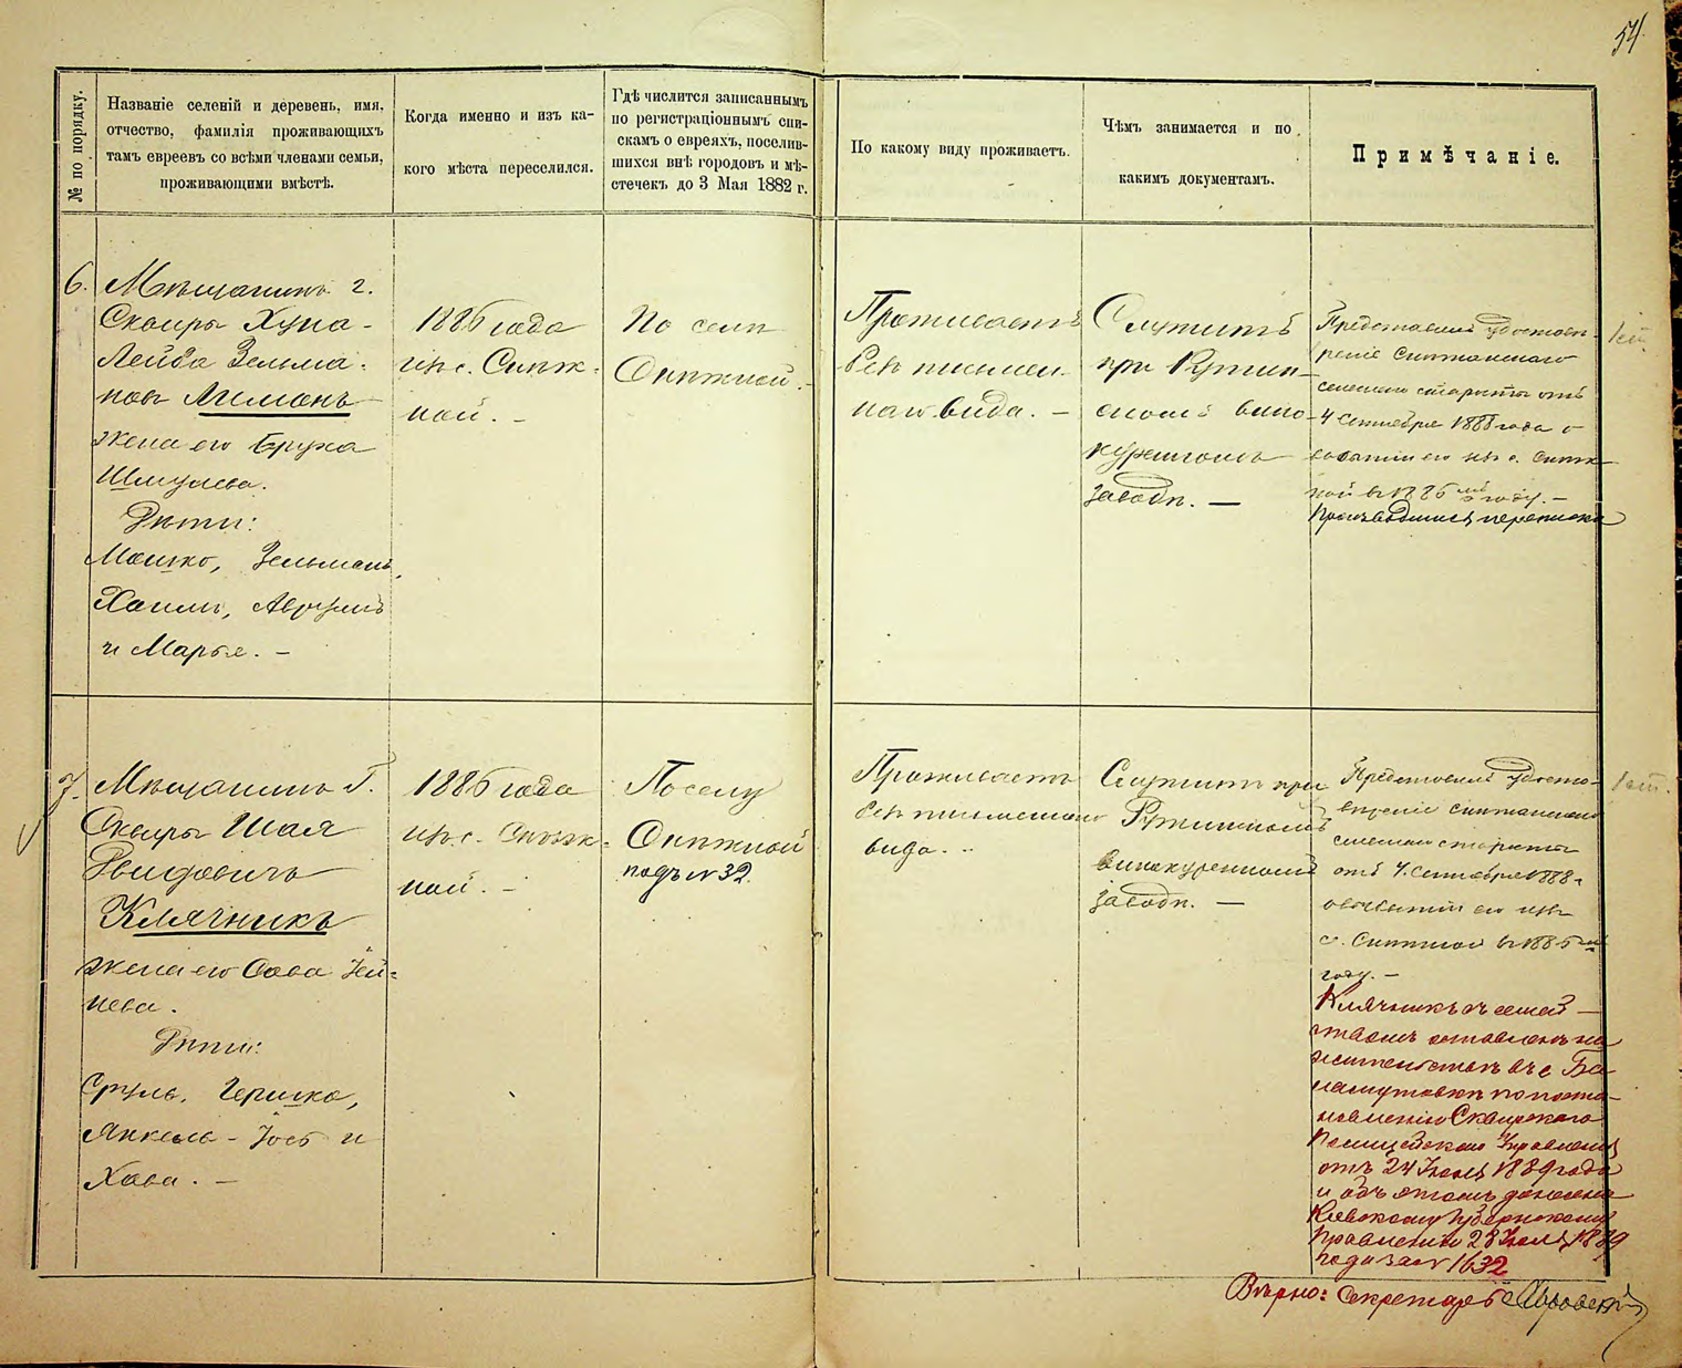 54.
№ по порядку.
Названіе селеній и деревень, имя,
отчество, фамилія проживающихъ
тамъ евреевъ со всѣми членами семьи,
проживающими вмѣстѣ.
Когда именно и изъ ка-
кого мѣста переселился.
Гдѣ числится записаннымъ
по регистраціоннымъ спи-
скамъ о евреяхъ, поселив-
шихся внѣ городовъ и мѣ-
стечекъ до 3 Мая 1882 г.
По какому виду проживаетъ.
Чѣмъ занимается и по
какимъ документамъ.
Примѣчаніе.
6.
Мѣщанинъ г.
Сквиры Хуна-
Лейба Зельма-
новъ
жена его Бруха
Шмулева.
Дѣти:
Мошко, Зельманъ,
Хаимъ, Аврумъ
и Марья. —
1886 года
изъ с. Снѣж-
ной. —
По селу
Снѣжной. —
Проживаетъ
безъ письмен-
наго вида. —
Служитъ
при Ружин-
скомъ вино-
куренномъ
заводѣ. —
Представилъ удостовѣ-
реніе Снѣжанскаго
сельскаго старосты отъ
4 Сентября 1888 года о
выбытіи его изъ с. Снѣж-
ной въ 1886 мъ году. —
Производится переписка
7.
Мѣщанинъ г.
Сквиры Шая
Дувидовичъ
Клячникъ
жена его Сова
нева.
Дѣти:
Сруль, Гершко,
Янкель-Іосъ и
Хава. —
1886 года
изъ с. Снѣж-
ной. —
По селу
Снѣжной
подъ № 32.
Проживаетъ
безъ письменнаго
вида. —
Служитъ при
Ружинскомъ
винокуренномъ
заводѣ. —
Представилъ удосто-
вѣреніе Снѣжанскаго
сельскаго старосты
отъ 4 Сентября 1888 г.
о выбытіи его изъ
с. Снѣжной въ 1886 мъ
году. —
Клячникъ съ семей-
ствомъ оставленъ на
жительствѣ въ с. Ба-
ламутовкѣ по поста-
новленію Сквирскаго
Полицейскаго Управленія
отъ 24 Іюля 1889 года
и объ этомъ донесено
Кіевскому Губернскому
Правленію 28 Іюля 1889
года за № 1632
Вѣрно: Секретарь